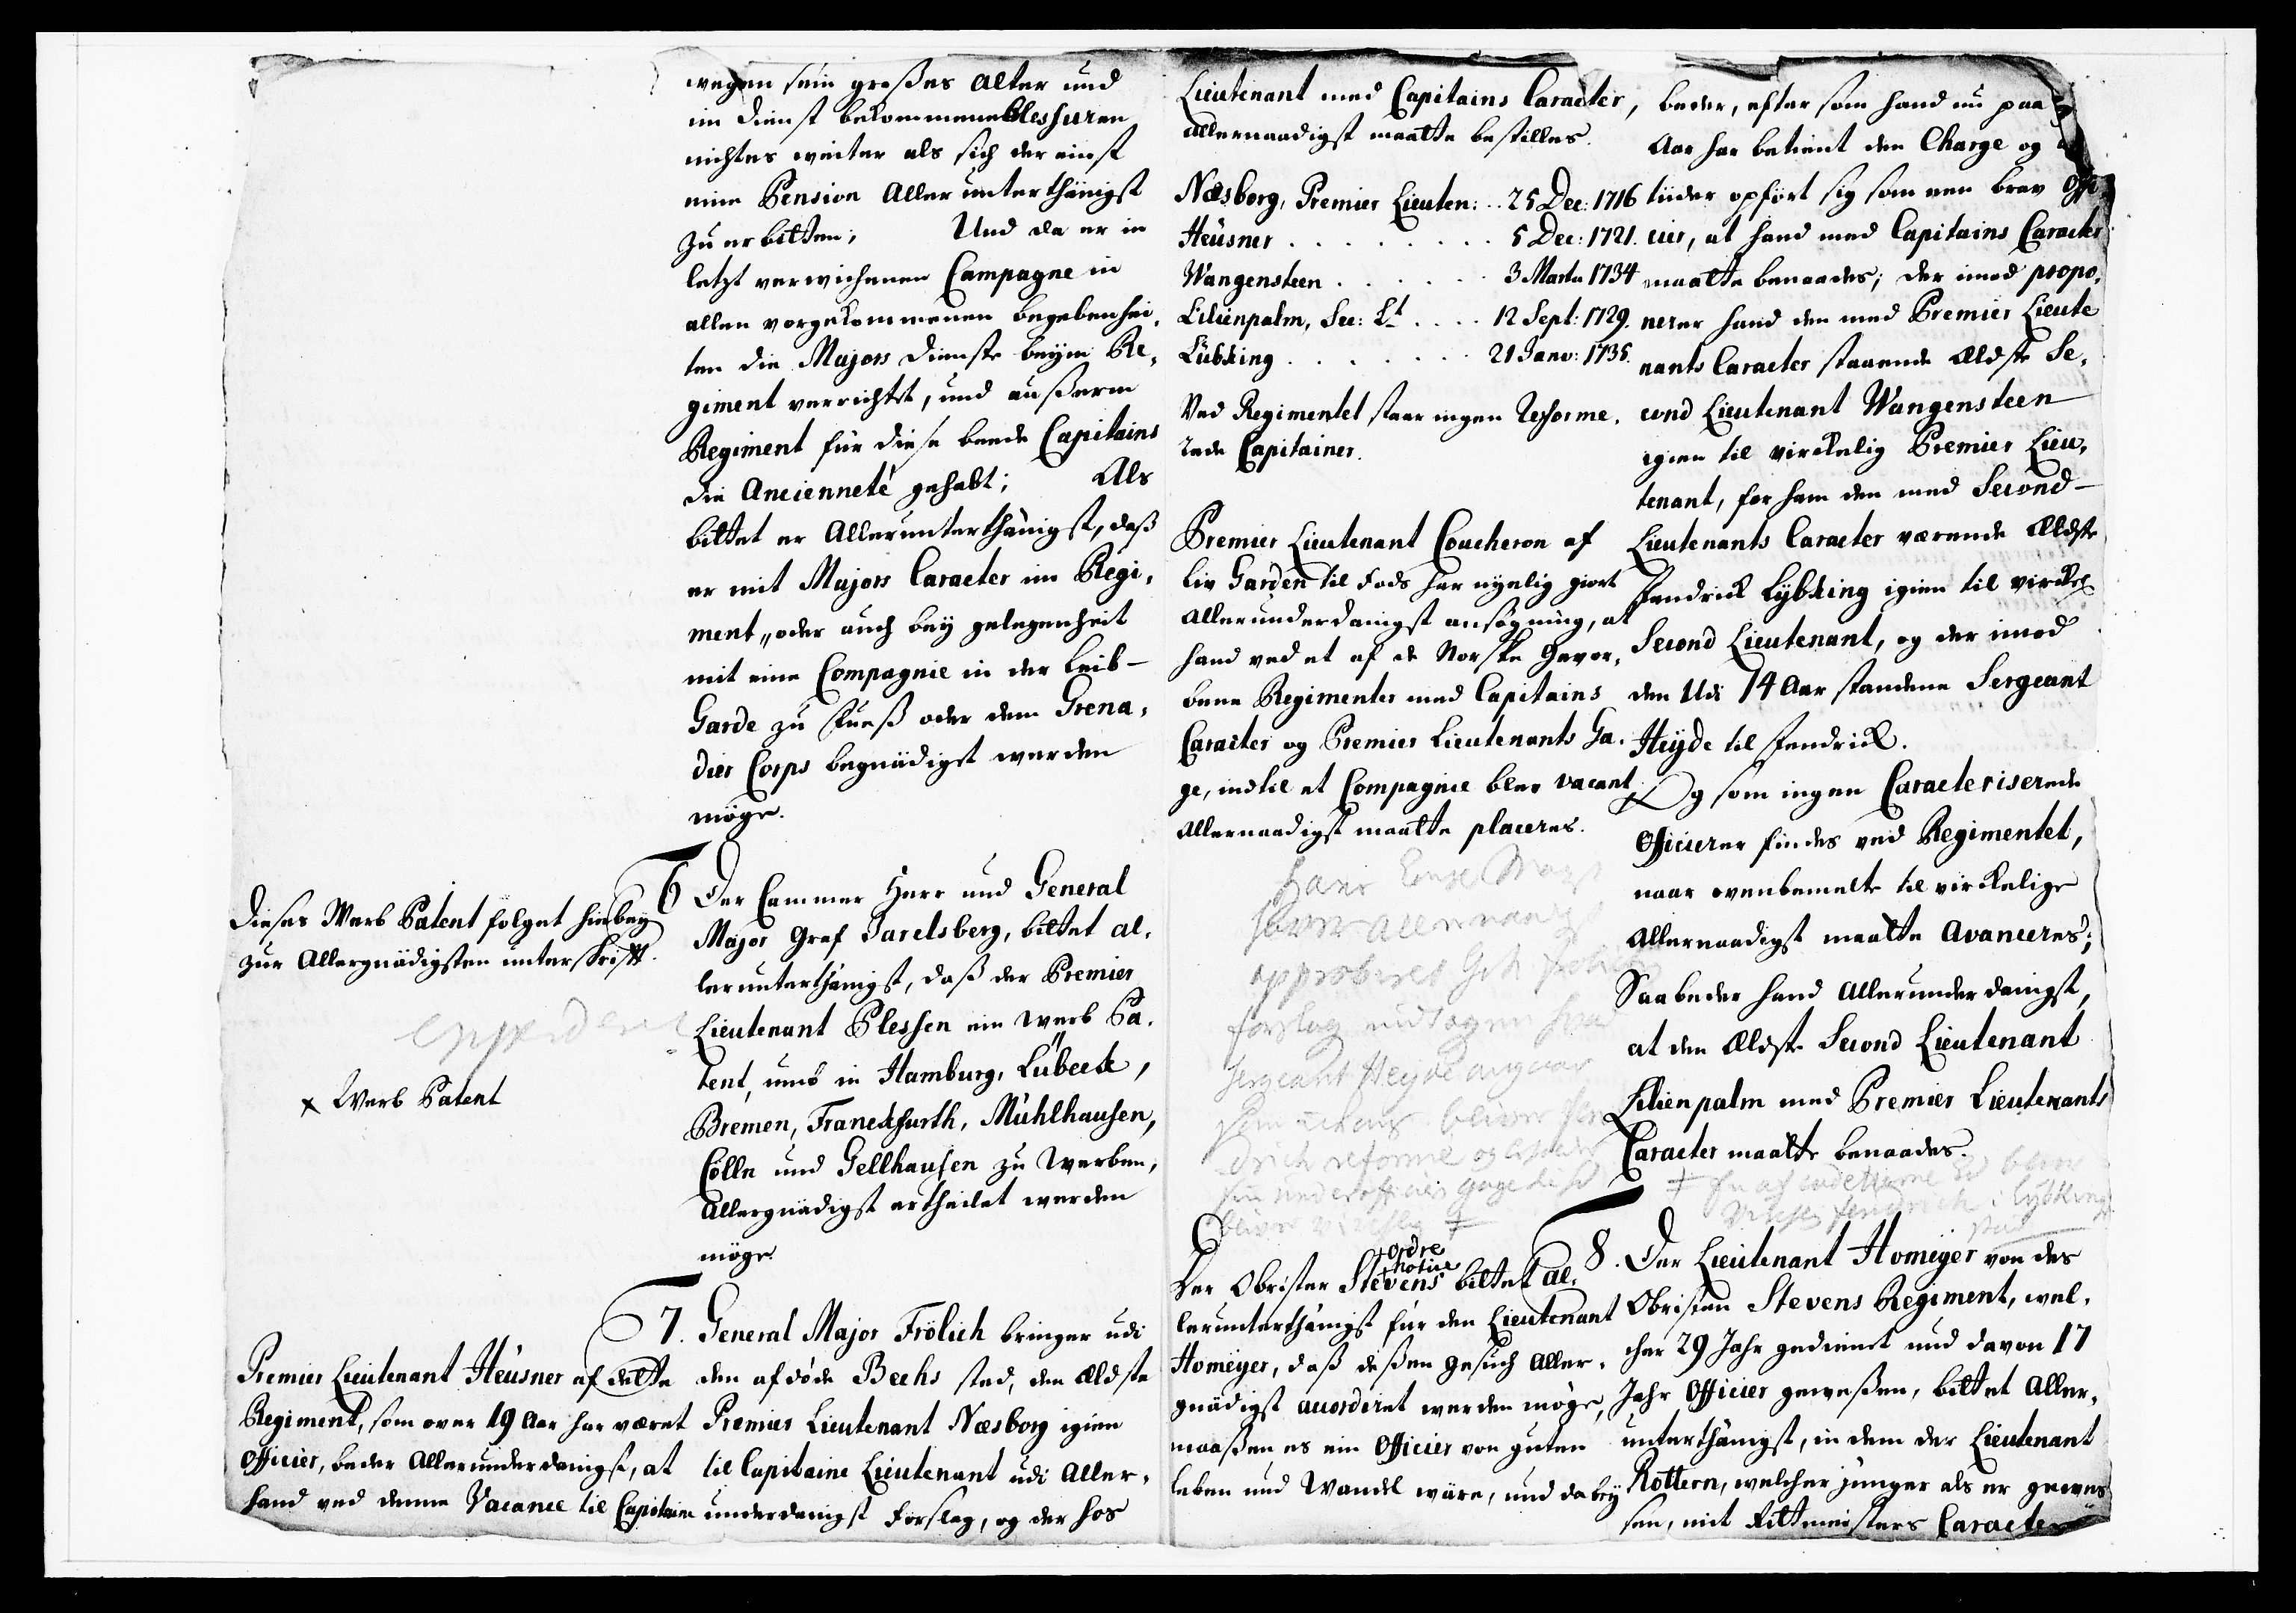 wegen sein großes Alter und
im Dienst bekommene Blessuren
nichtes weiter als sich der einst
eine Pension Allerunterthänigst
zu erbitten; Und da er in
letzt verwichenen Campagne in
allen vorgekommenen begebenhei-
ten die Majors Dienste beym Re-
giment verrichtet, und außerm
Regiment für diese beede Capitains
die Ancienneté gehabt; Als
bittet er Allerunterthänigst, daß
er mit Majors Caracter im Regi-
ment, oder auch bey gelegenheit
mit eine Compagnie in der Leib-
Garde zu Fueß oder dem Grena-
dier Corps begnädiget werden
möge.
Dieses Werb Patent folget hierbey
zur Allergnädigsten unterschrifft.
x Werb Patent
6 Der Cammer Herr und General
Major Graf Jarelsberg, bittet al-
lerunterthänigst, daß der Premier
Lieutenant Plessen ein Werb Pa-
tent, umb in Hamburg, Lübeck,
Bremen, Franckfurth, Mühlhausen,
Cölln und Gellhausen zu Werben,
Allergnädigst ertheilet werden
möge.
Premier Lieutenant Heüsner af dette
Regiment, som over 19 Aar har været
Officier, beder Allerunderdanigst, at
hand ved denne Vacance til Capitaine
7. General Major Frölich bringer udi
den afdöde Bechs sted, den Ældste
Premier Lieutenant Næsborg igien
til Capitaine Lieutenant udi Aller-
underdanigst Forslag, og der hos
Lieutenant med Capitains Caracter,
Allernaadigst maatte bestilles.
Næsborg, Premier Lieuten: .. 25 Dec: 1716
Heüsner . . . . . . . . 5 Dec: 1721.
Wangensteen . . . . . 3 Martii 1734
Lilienpalm, Sec: Lt . . . . 12 Sept: 1729.
Lübking . . . . . . . 21 Janv: 1735.
Ved Regimentet staar ingen Reforme-
rede Capitainer.
Premier Lieutenant Coucheron af
Liv Garden til Fods har nyelig giort
Allerunderdanigst ansøgning, at
hand ved et af de Norske Gevor-
bene Regimenter med Capitains
Caracter og Premier Lieutenants Ga-
ge, indtil et Compagnie blev vacant,
Allernaadigst maatte placeres.
Hans Kongl May
approberes
forslag undtagen hvad
Sergeant Heyde angaar
ordre
notice
Der Obrister Stevens bittet al-
lerunterthänigst für den Lieutenant
Homeyer, daß deßen gesuch Aller-
gnädigst accordiret werden möge,
maaßen es ein Officier von guten
leben und Wandel wäre, und dabey
beder, efter som hand nu paa
Aar har betient den Charge og
tiider opført sig som een brav Offi-
cier, at hand med Capitains Caracter
maatte benaades; Der imod propo-
nerer hand den med Premier Lieute
nants Caracter staaende Ældste Se-
cond Lieutenant Wangensteen
igien til virckelig Premier Lieu-
tenant, for ham den med Second-
Lieutenants Caracter værende Ældste
Fendrick Lybking igien til virckel:
Second Lieutenant, og der imod
den udi 14 Aar standene Sergeant
Heyde til Fendrick.
Og som ingen Caracteriserede
Officierer findes ved Regimentet,
naar ovenbemelte til virckelige
Allernaadigst maatte Avanceres;
Saa beder hand Allerunderdanigst,
at den Ældste Second Lieutenant
Lilienpalm med Premier Lieutenants
Caracter maatte benaades.
8. Der Lieutenant Homeyer von des
Obristen Stevens Regiment, wel-
cher 29 Jahr gedienet und davon 17
Jahr Officier geweßen, bittet Aller-
unterthänigst, in dem der Lieutenant
Rottern, welcher jünger als er gewes
sen, mit Rittmeisters Caracter